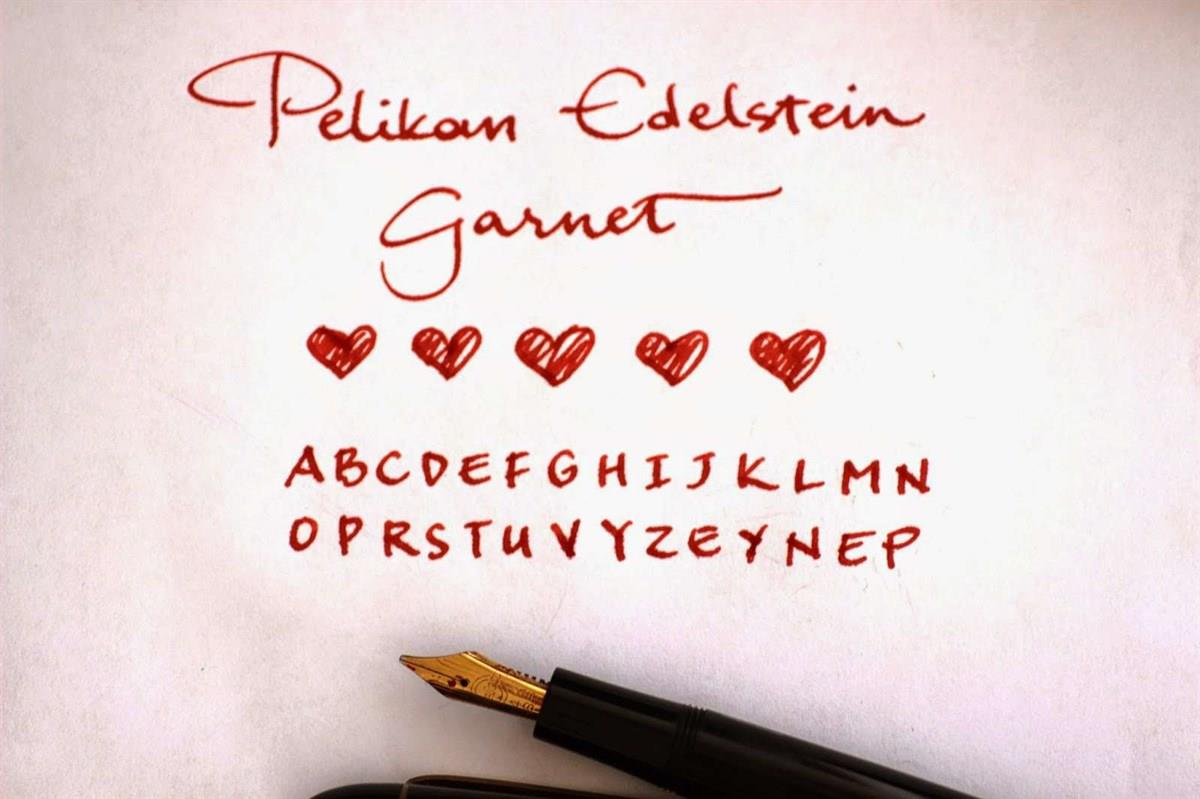 Pelikan Edelstein
Garnet
ABCDEFGHIJKLMN
OPRSTUVYZEYNEP